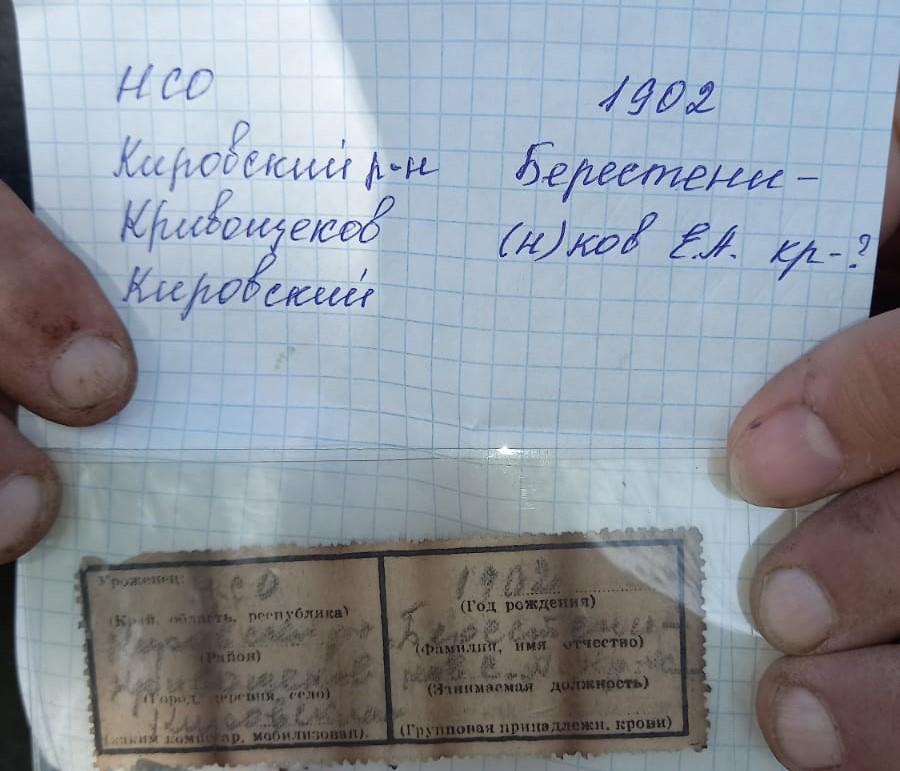 НСО
1902
Кировский р-н
Берестени-
Кривощеков
(н)ков Е.А. кр-?
Кировский
Уроженец: НСО
(Край, область, республика)
(Район)
(Город, деревня, село)
(каким комиссар, мобилизован).
1902
(Год рождения)
Берестени-
(Фамилия, имя отчество)
(Занимаемая должность)
(Групповая принадлежн, крови)